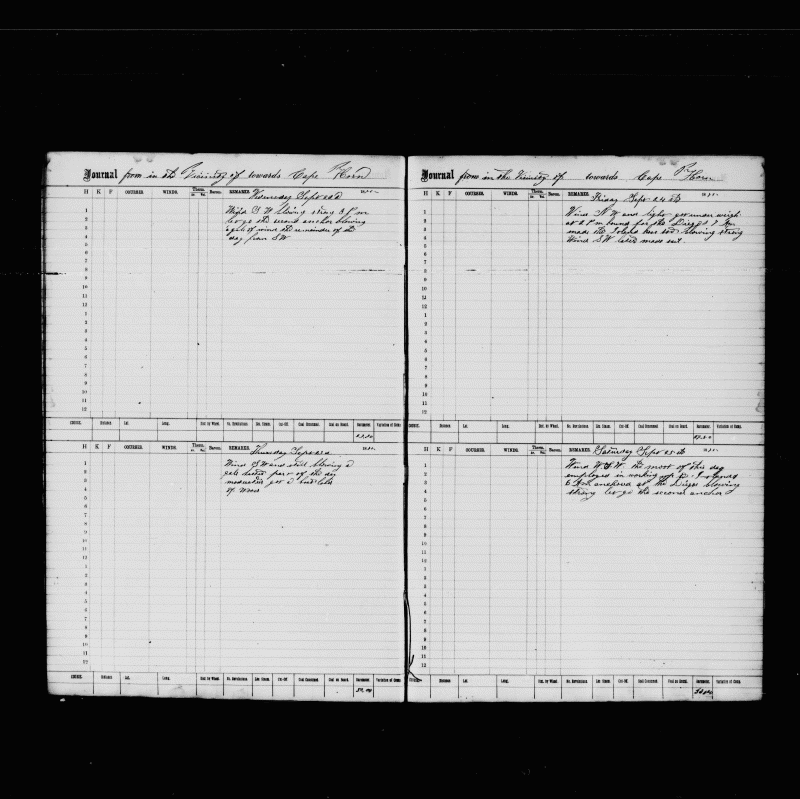 Journal from in the Vicinity of towards Cape Horn
H K F COURSES. WINDS. Therm. Barom. REMARKS.
Wednesday Sept 22d
Wind S W blowing strong 8 P m
let go the second anchor blowing
a gale of wind the remainder of the
day from S W
1
2
3
4
5
6
7
8
9
10
11
12
1
2
3
4
5
6
7
8
9
10
11
12
COURSE. Distance. Lat. Long. Dist. by Wheel. No. Revolutions. Lbs. Steam. Cut-Off. Coal Consumed. Coal on Board. Barometer. Variation of Comp.
H K F COURSES. WINDS. Therm. Barom. REMARKS.
Thursday Sept 23d
Wind S W and still blowing a
gale latter part of the day
moderated got a boat load
of wood
1
2
3
4
5
6
7
8
9
10
11
12
1
2
3
4
5
6
7
8
9
10
11
12
COURSE. Distance. Lat. Long. Dist. by Wheel. No. Revolutions. Lbs. Steam. Cut-Off. Coal Consumed. Coal on Board. Barometer. Variation of Comp.
Journal from in the Vicinity of towards Cape Horn
H K F COURSES. WINDS. Therm. Barom. REMARKS.
Friday Sept 24th
Wind and light got under weigh
at 2 P m bound for the
made the Island blowing strong
Wind S W
1
2
3
4
5
6
7
8
9
10
11
12
1
2
3
4
5
6
7
8
9
10
11
12
COURSE. Distance. Lat. Long. Dist. by Wheel. No. Revolutions. Lbs. Steam. Cut-Off. Coal Consumed. Coal on Board. Barometer. Variation of Comp.
H K F COURSES. WINDS. Therm. Barom. REMARKS.
Saturday Sept 25th
Wind W S W. the most of this day
employed in working up to Islands
anchored at the blowing
strong let go the second anchor
1
2
3
4
5
6
7
8
9
10
11
12
1
2
3
4
5
6
7
8
9
10
11
12
COURSE. Distance. Lat. Long. Dist. by Wheel. No. Revolutions. Lbs. Steam. Cut-Off. Coal Consumed. Coal on Board. Barometer. Variation of Comp.